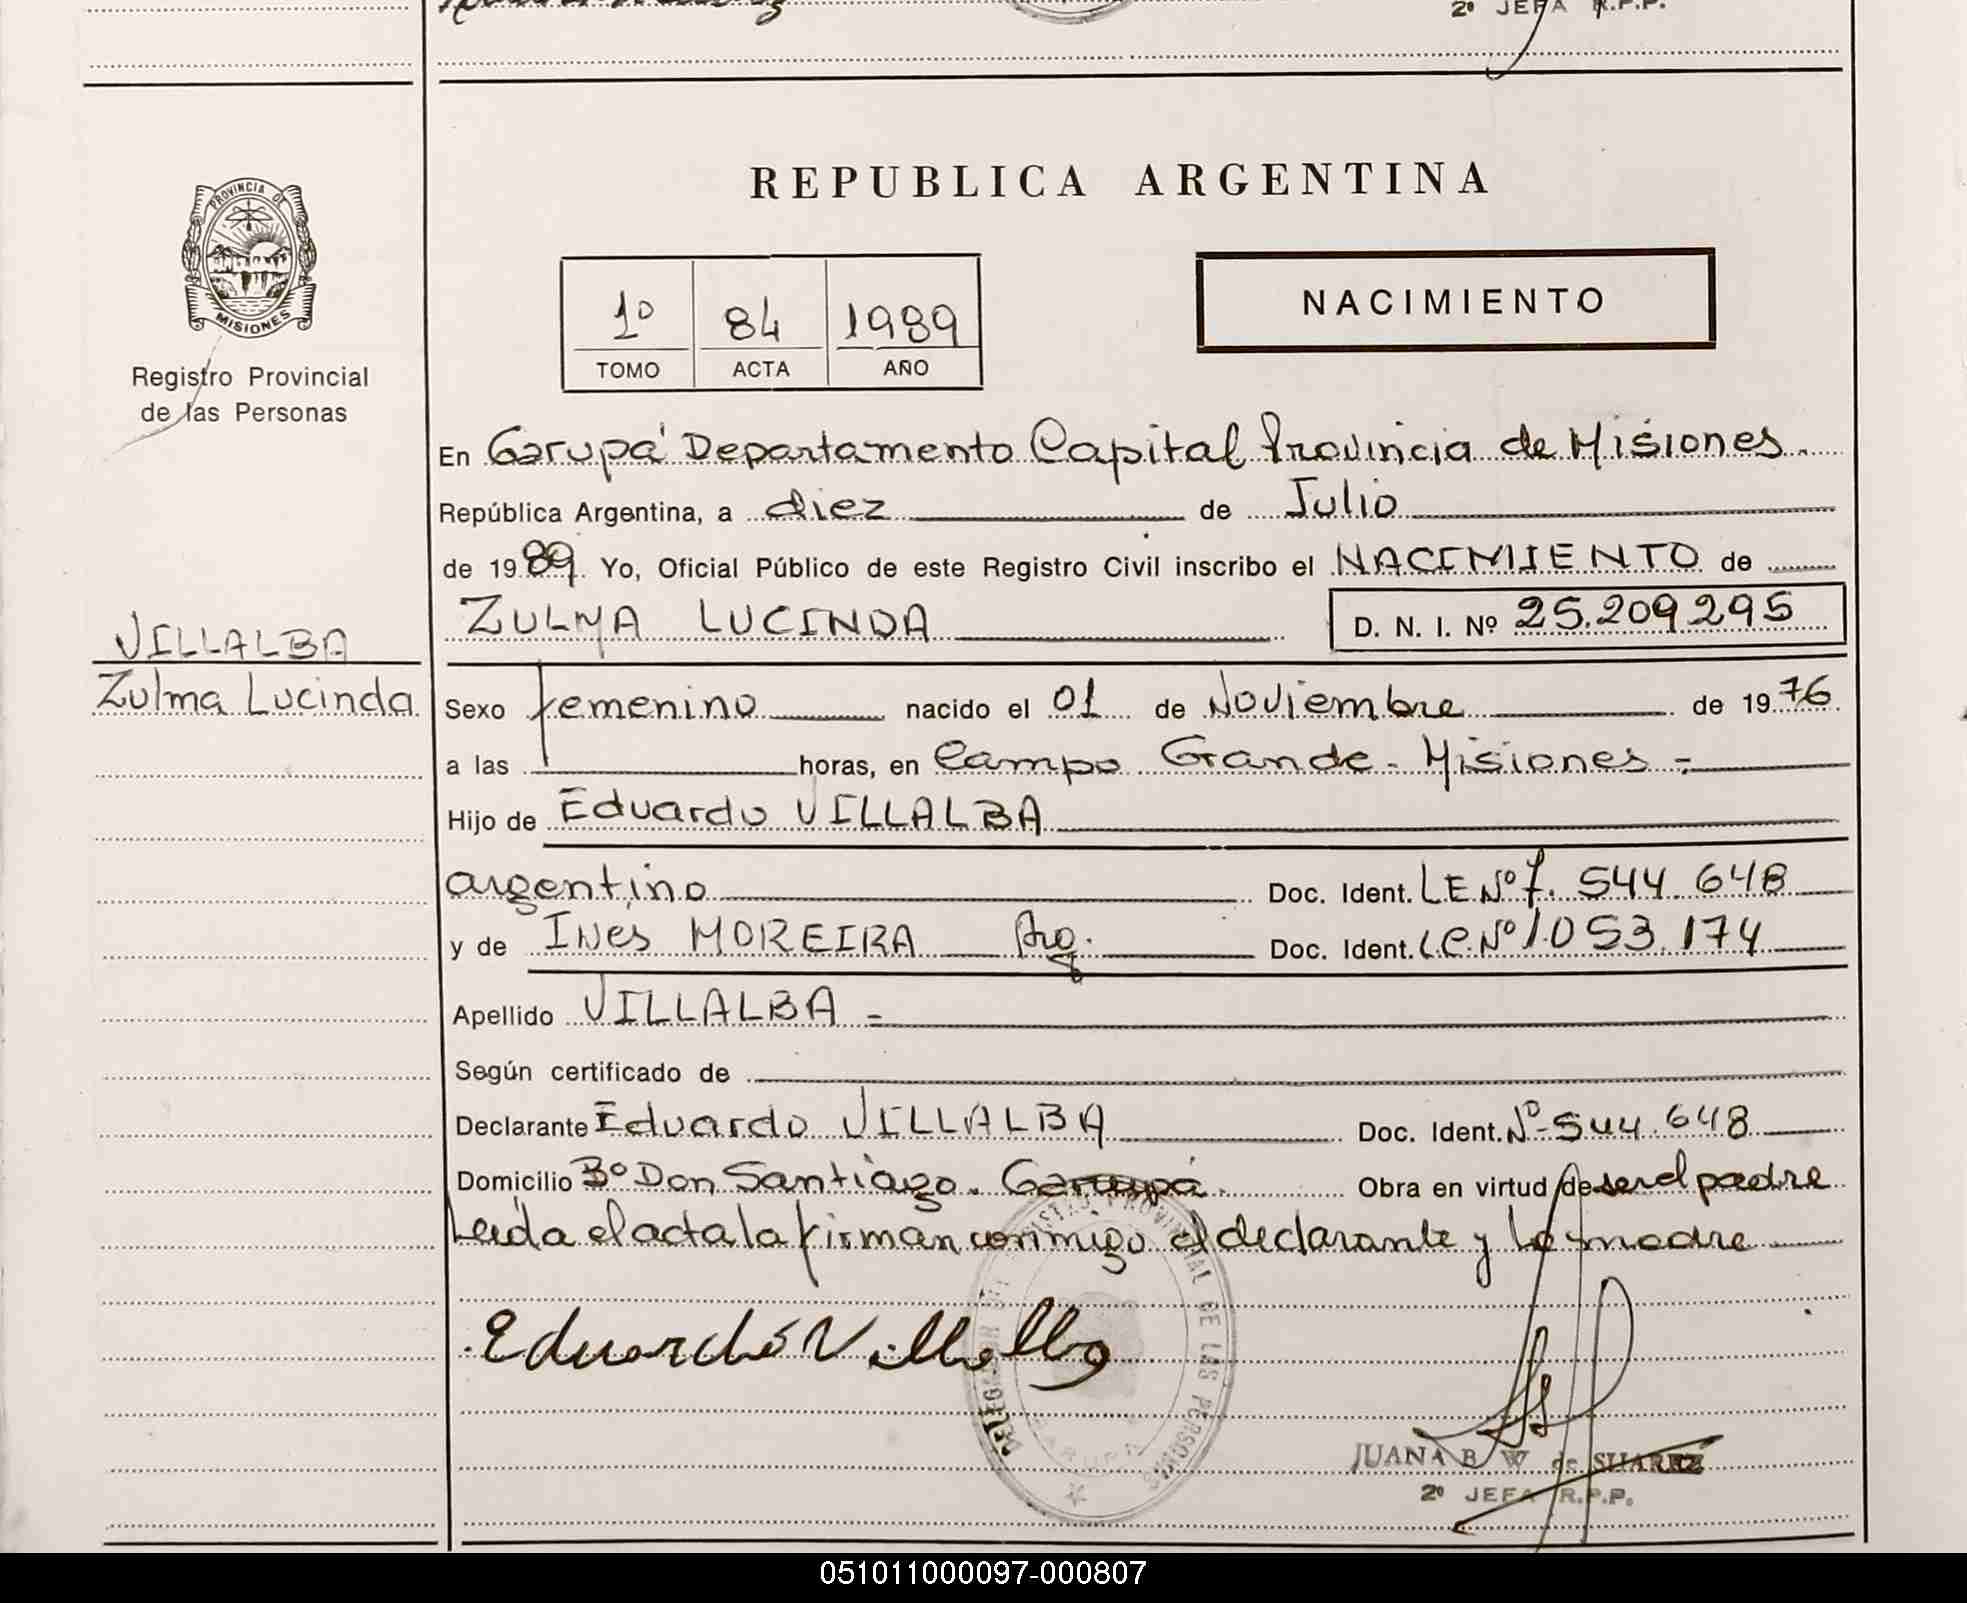 2º JEFA R.P.P.
PROVINCIA DE
MISIONES
Registro Provincial
de las Personas
VILLALBA
Zulma Lucinda
REPUBLICA ARGENTINA
1º 84 1989
TOMO ACTA AÑO
NACIMIENTO
En Garupá Departamento Capital Provincia de Misiones.
República Argentina, a diez de Julio
de 1989. Yo, Oficial Público de este Registro Civil inscribo el NACIMIENTO de
ZULMA LUCINDA D. N. I. Nº 25.209.295
Sexo femenino nacido el 01 de Noviembre de 1976
a las horas, en Campo Grande - Misiones -
Hijo de Eduardo VILLALBA
argentino Doc. Ident. LE Nº 7.544.648
y de Inés MOREIRA Arg. Doc. Ident. L.C. Nº 1.053.174
Apellido VILLALBA -
Según certificado de
Declarante Eduardo VILLALBA Doc. Ident. Nº 544.648
Domicilio Bº Don Santiago. Garupá. Obra en virtud de ser el padre
Leida el acta la firman conmigo el declarante y la madre
Eduardo Villalba
PROVINCIAL DE LAS PERSONAS
JUANA B. W. de SUAREZ
2º JEFA R.P.P.
051011000097-000807